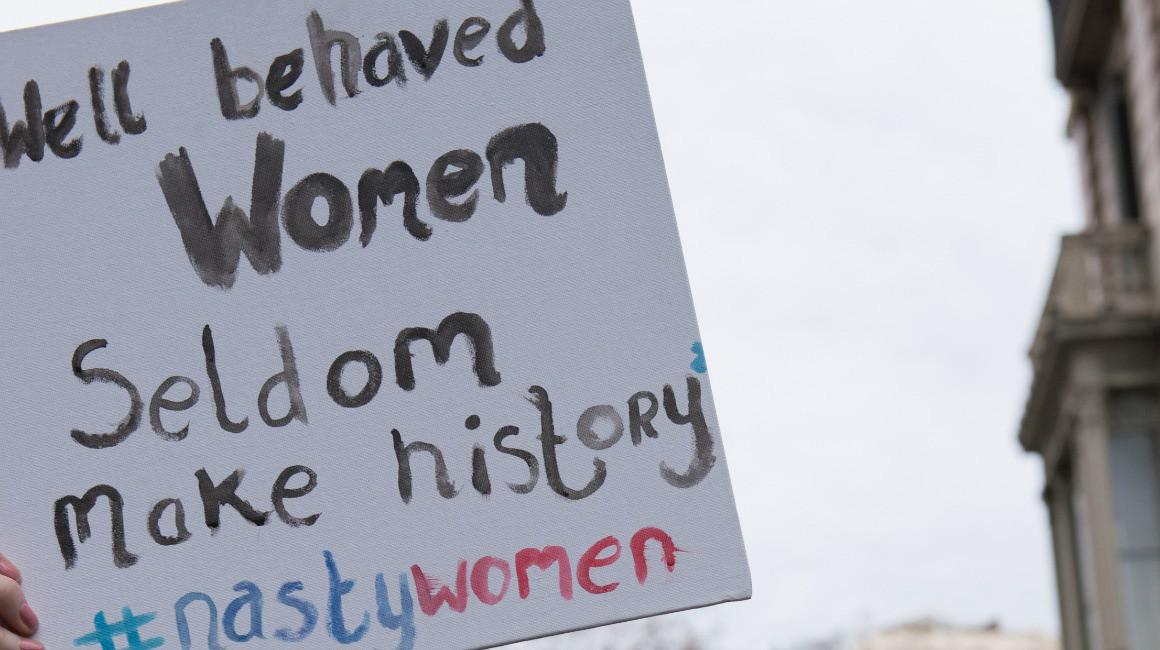 Well behaved
Women
Seldom
make history
#nastywomen